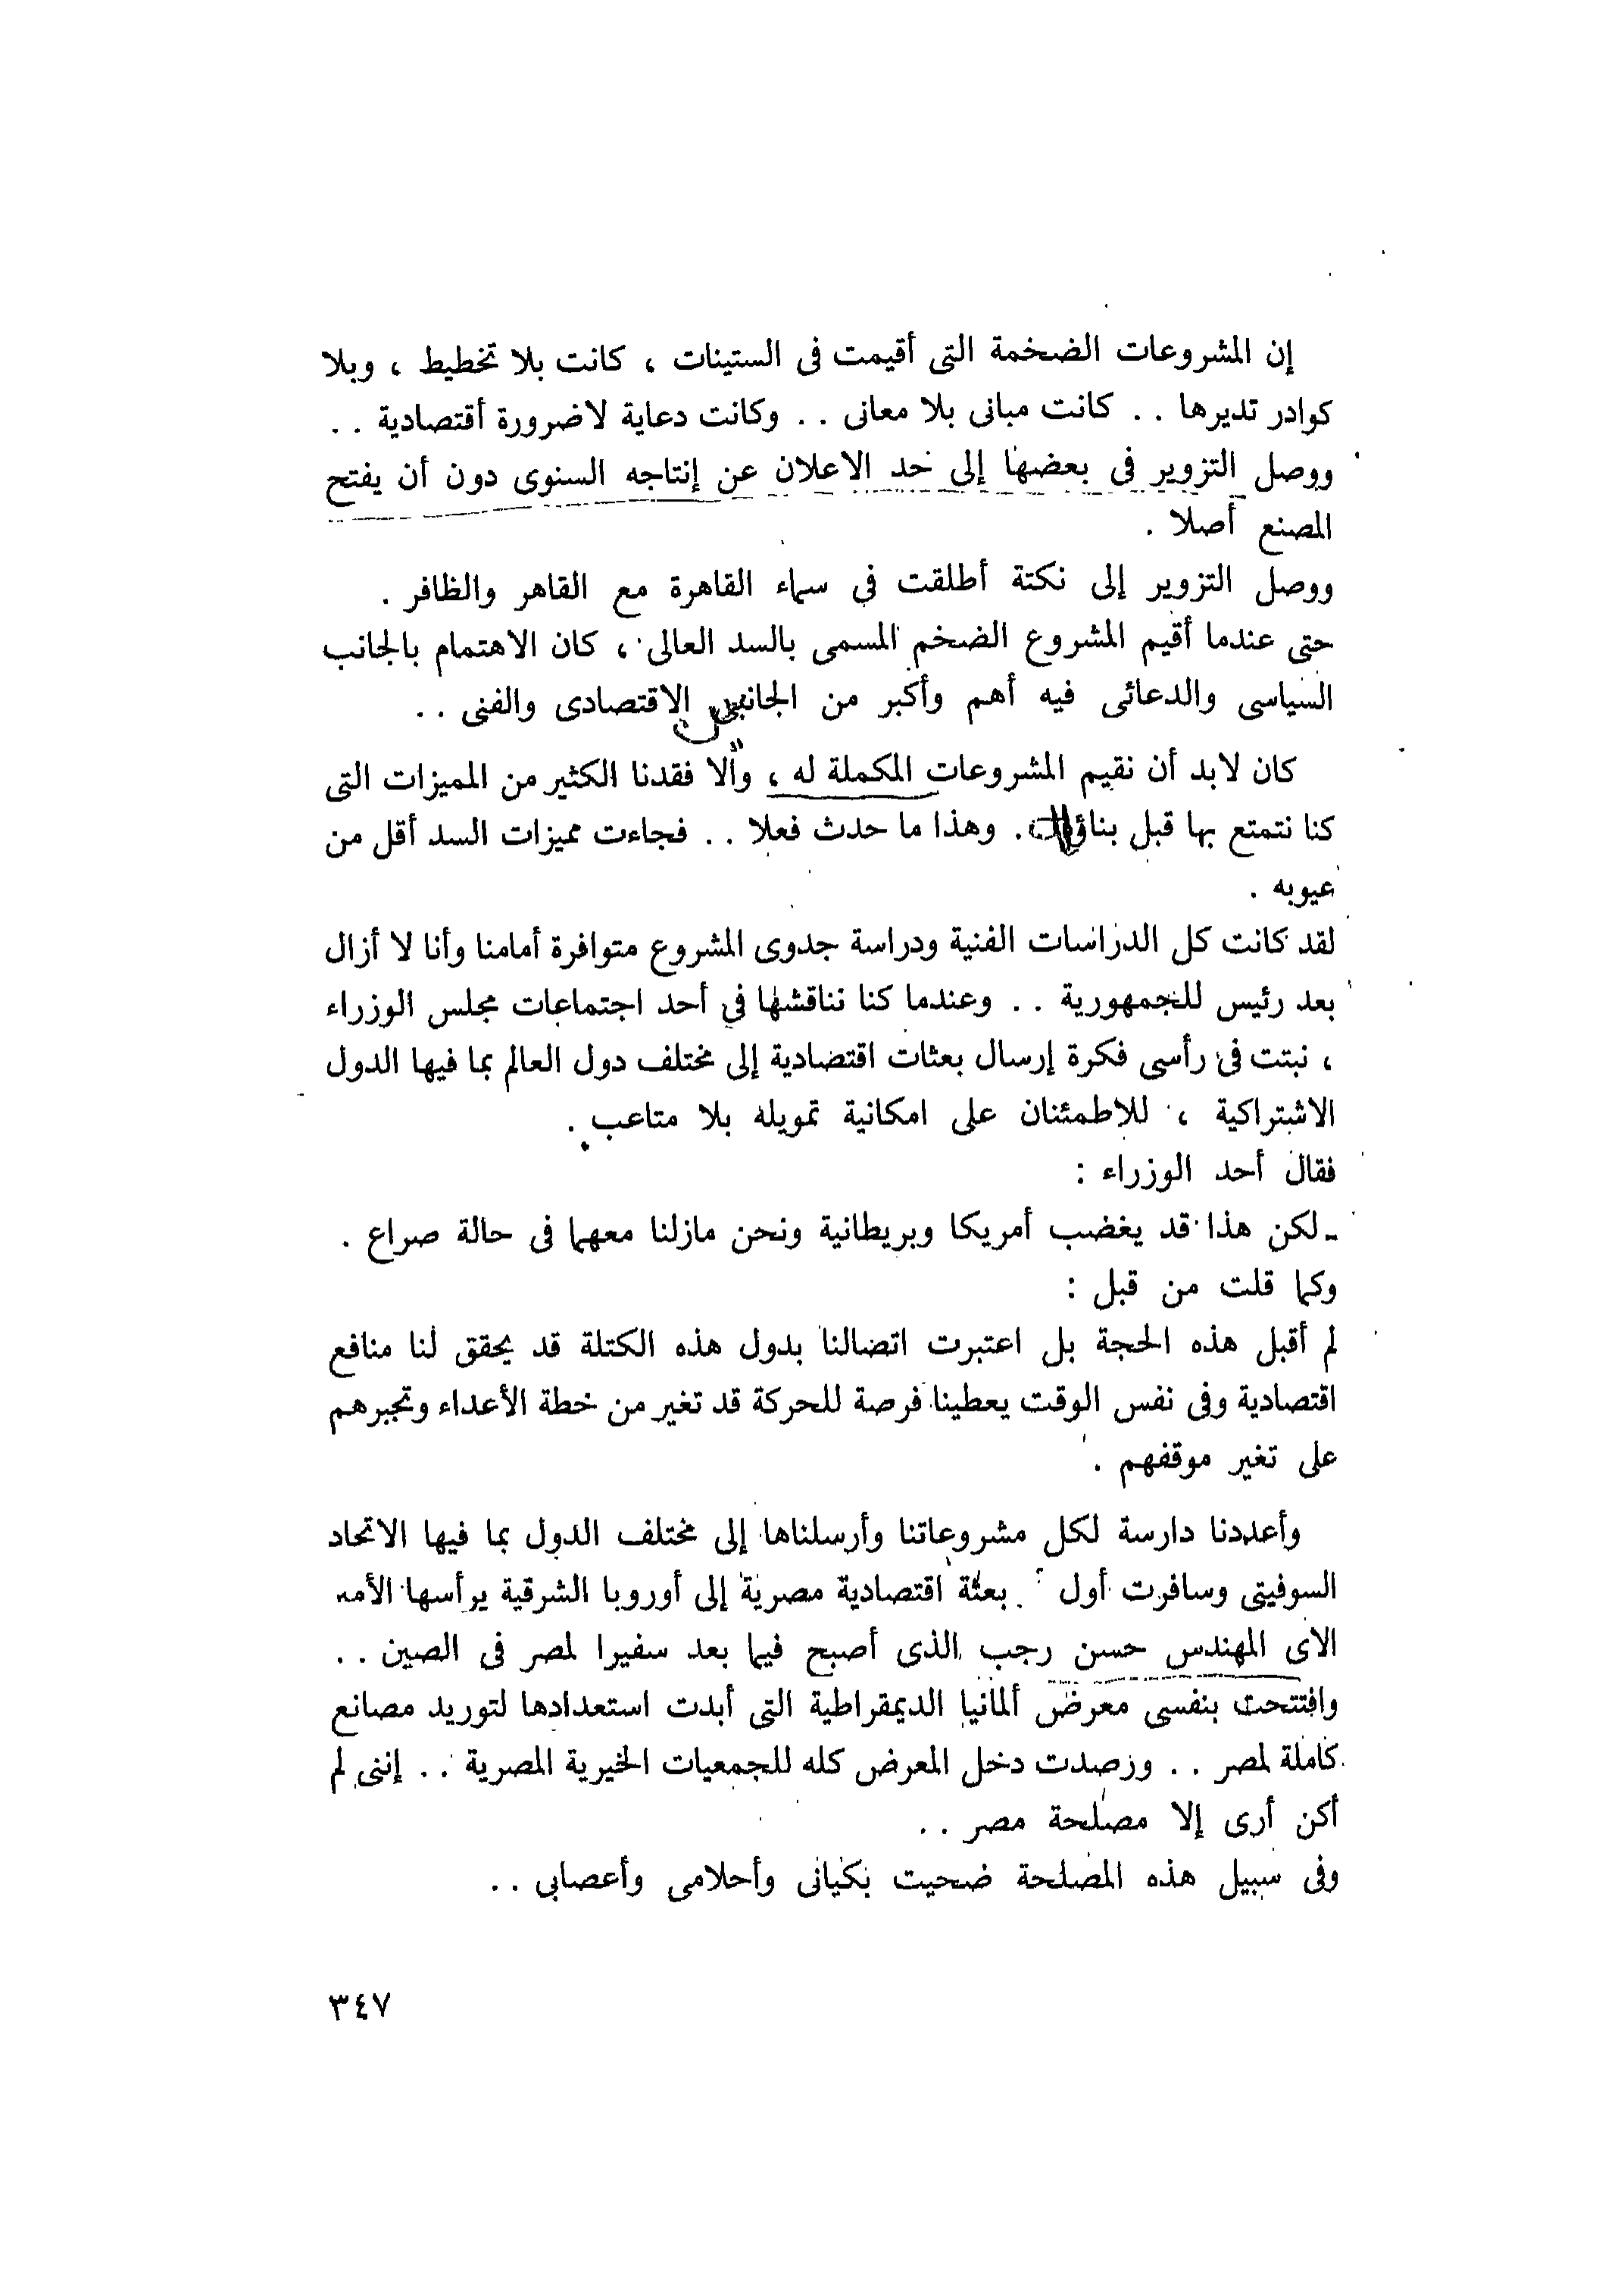 إن المشروعات الضخمة التى أقيمت فى الستينات ، كانت بلا تخطيط ، وبلا
كوادر تديرها . . كانت مبانى بلا معانى . . وكانت دعاية لاضرورة أقتصادية . .
ووصل التزوير فى بعضها إلى حد الاعلان عن إنتاجه السنوى دون أن يفتح
المصنع أصلا .
ووصل التزوير إلى نكتة أطلقت فى سماء القاهرة مع القاهر والظافر .
حتى عندما أقيم المشروع الضخم المسمى بالسد العالى ، كان الاهتمام بالجانب
السياسى والدعائى فيه أهم وأكبر من الاقتصادى والفنى . .
كان لابد أن نقيم المشروعات المكملة له ، وألا فقدنا الكثير من المميزات التى
كنا نتمتع بها قبل . وهذا ما حدث فعلا . . فجاءت مميزات السد أقل من
عيوبه .
لقد كانت كل الدراسات الفنية ودراسة جدوى المشروع متوافرة أمامنا وأنا لا أزال
بعد رئيس للجمهورية . . وعندما كنا نناقشها فى أحد اجتماعات مجلس الوزراء
، نبتت فى رأسى فكرة إرسال بعثات اقتصادية إلى مختلف دول العالم بما فيها الدول
الاشتراكية ، للإطمئنان على امكانية تمويله بلا متاعب .
فقال أحد الوزراء :
ـ لكن هذا قد يغضب أمريكا وبريطانية ونحن مازلنا معهما فى حالة صراع .
وكما قلت من قبل :
لم أقبل هذه الحجة بل اعتبرت اتصالنا بدول هذه الكتلة قد يحقق لنا منافع
اقتصادية وفى نفس الوقت يعطينا فرصة للحركة قد تغير من خطة الأعداء وتجبرهم
على تغير موقفهم .
وأعددنا دارسة لكل مشروعاتنا وأرسلناها إلى مختلف الدول بما فيها الاتحاد
السوفيتى وسافرت أول بعثة اقتصادية مصرية إلى أوروبا الشرقية يرأسها
الاى المهندس حسن رجب الذى أصبح فيما بعد سفيرا لمصر فى الصين . .
وافتتحت بنفسى معرض ألمانيا الديمقراطية التى أبدت استعدادها لتوريد مصانع
كاملة لمصر . . ورصدت دخل المعرض كله للجمعيات الخيرية المصرية . . إننى لم
أكن أرى إلا مصلحة مصر . .
وفى سبيل هذه المصلحة ضحيت بكيانى وأحلامى وأعصابى . .
٣٤٧